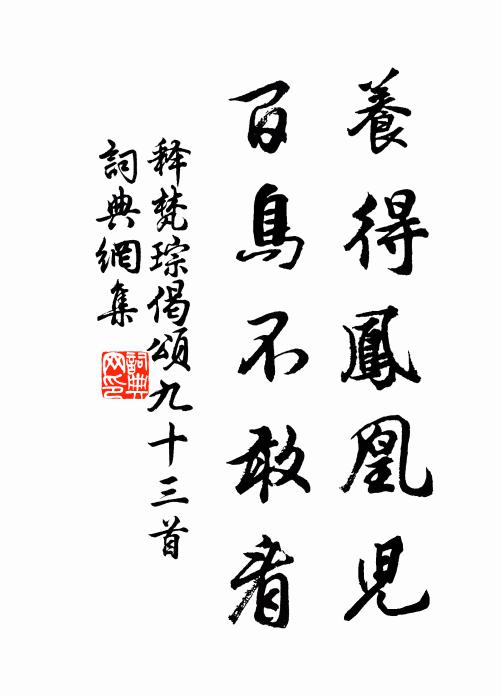 養得鳳凰児
百鳥不敢看
释梵琮偈頌九十三首
詞典網集
詞典网印